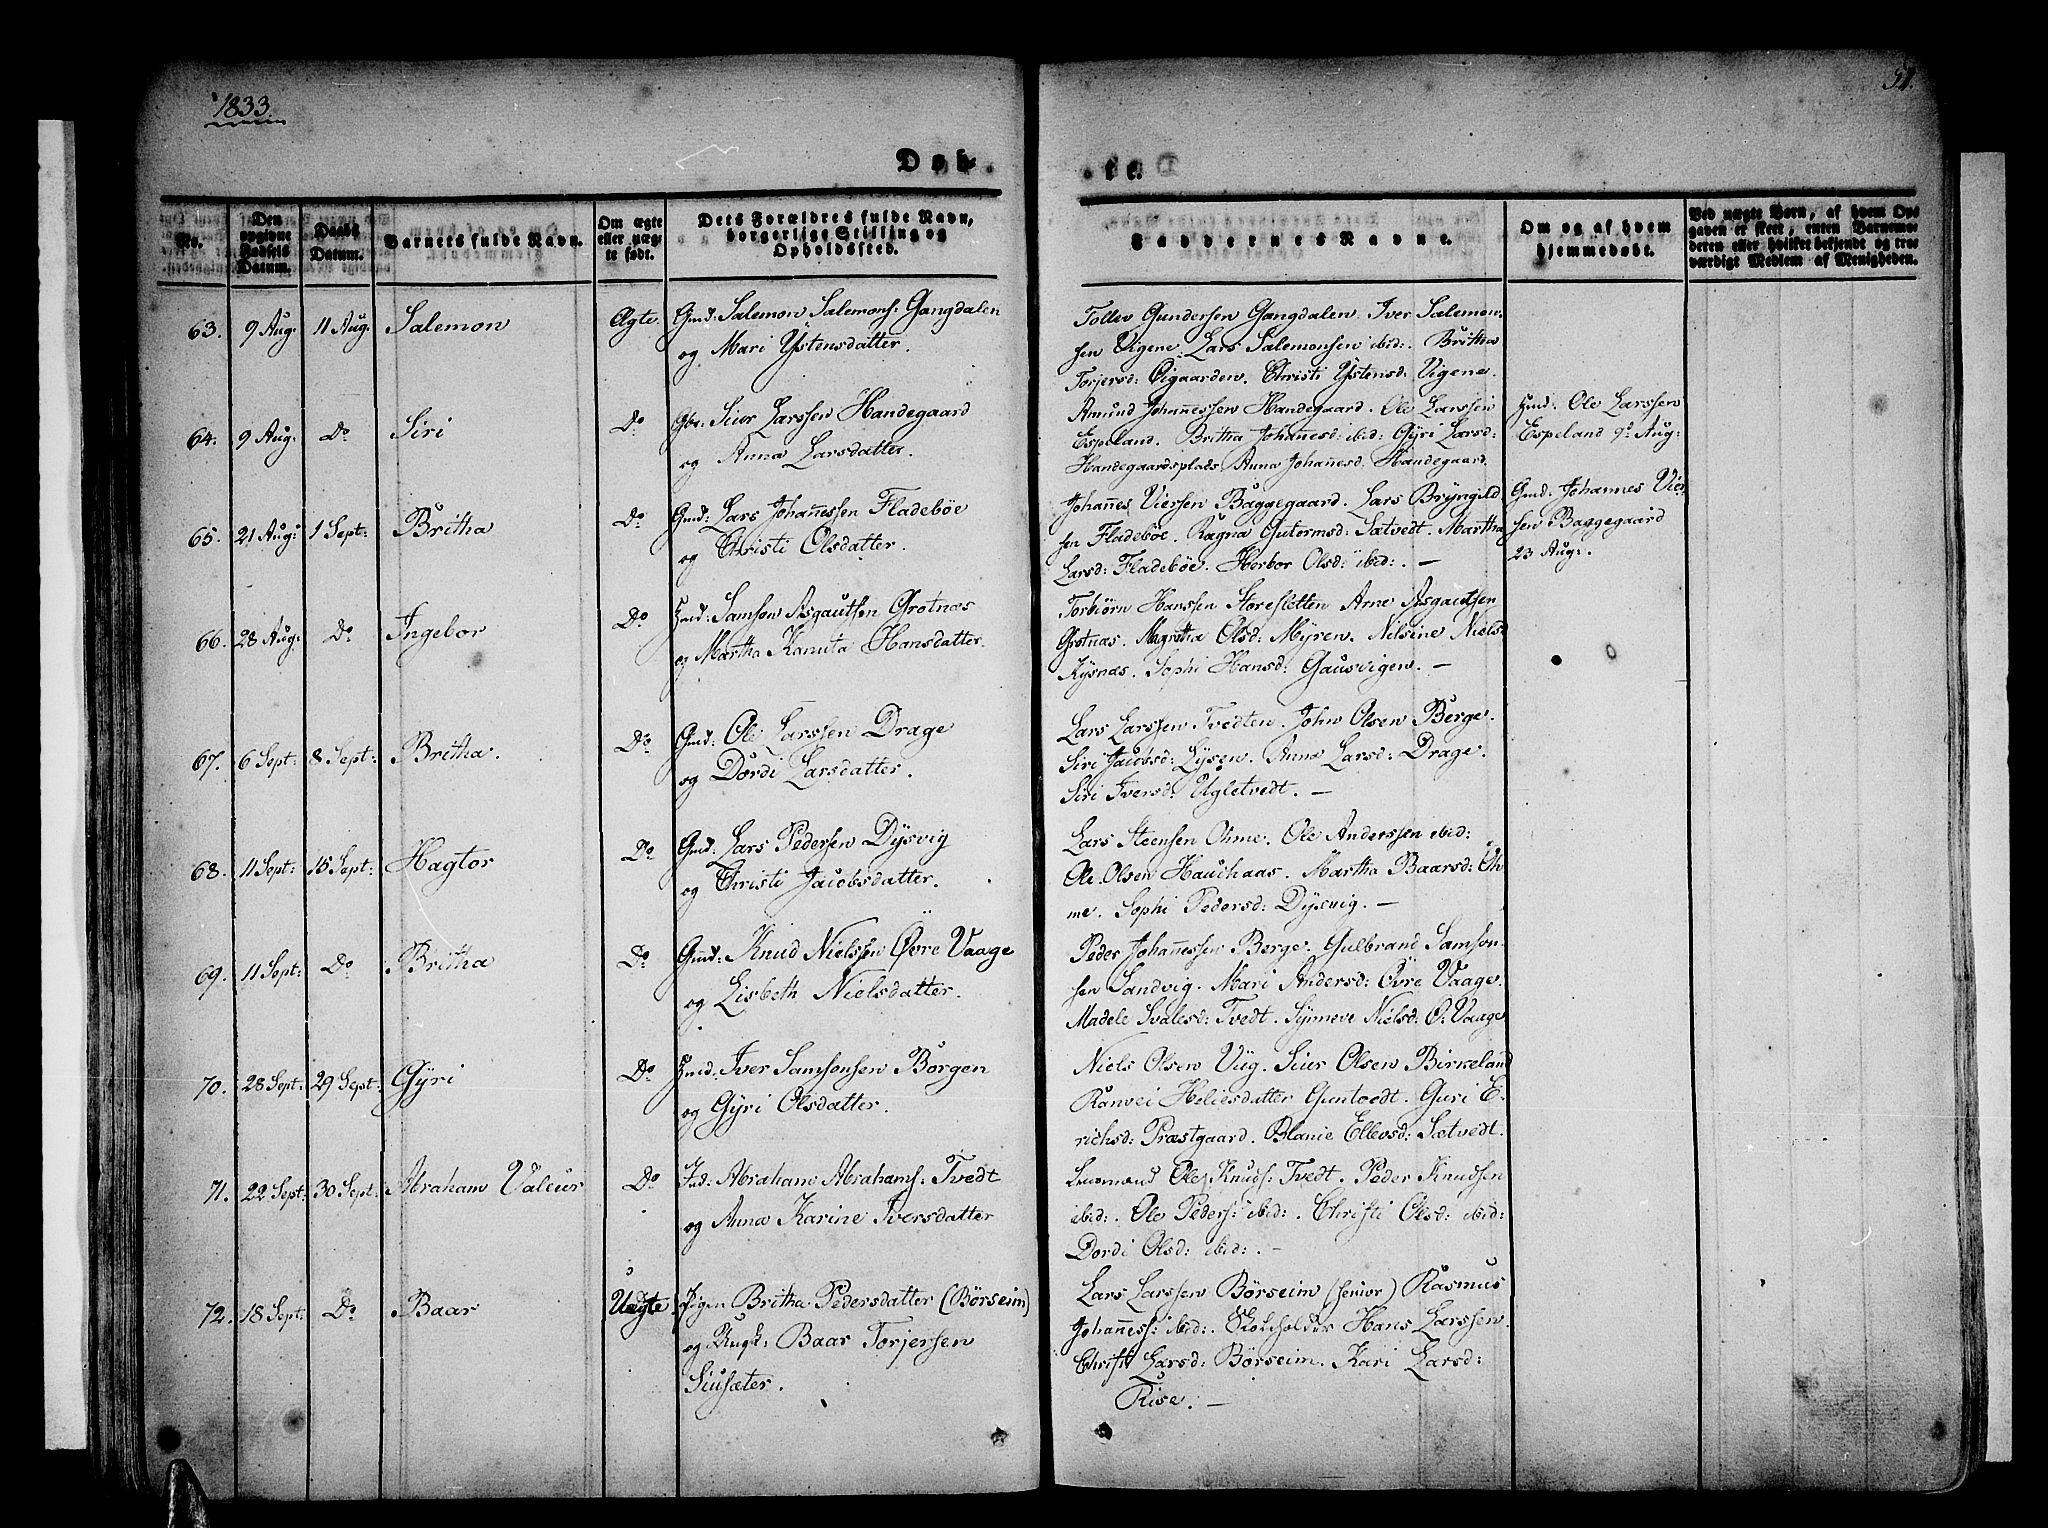 1833.
51.
Døb-
te.
No.
Den opgivne Fødsels Datum.
Daabs Datum.
Barnets fulde Navn.
Om ægte eller uægte født.
Dets Forældres fulde Navn, borgerlige Stilling og Opholdssted.
Faddernes Navne.
Om og af hvem hjemmedøbt.
Ved uægte Børn, af hvem Opgaven er skeet, enten Barnemoderen eller hvilket bekjendt og troværdigt Medlem af Menigheden.
63. 9 Aug: 11 Aug: Salemon Ægte. Gmd: Salemon Salemons: Gangdalen
og Mari Ÿstensdatter.
Tollev Gundersen Gangdalen. Iver Salemon-
sen Vigene. Lars Salemonsen ibid:. Britha
Torjersd: Øigaarden. Christi Ÿstensd: Vigene.
64. 9 Aug: Do Siri Do Gbr: Siur Larssen Handegaard
og Anna Larsdatter.
Amund Johannessen Handegaard. Ole Larssen
Espeland. Britha Johannesd: ibid: Gÿri Larsd:
Handegaardsplads. Anna Johannesd: Handegaard.
Hmd: Ole Larssen
Espeland 9. Aug:
65. 21 Aug: 1 Sept: Britha Do Gmd: Lars Johannessen Fladeböe
og Christi Olsdatter.
Johannes Viersen Baggegaard. Lars Brÿngild-
sen Fladeböe. Ragna Gutormsd: Sætvedt. Martha
Larsd: Fladeböe. Herbor Olsd: ibid:. —
Gmd: Johannes Vier-
sen Baggegaard
23 Aug:.
66. 28 Aug: Do Ingebor Do Hmd: Samson Asgautsen Grotnæs
og Martha Kanuta Hansdatter.
Torbiörn Hanssen Storesletten. Arne Asgautsen
Grotnæs. Magretha Olsd: Mÿren. Nilsine Nielsd
Rÿsnæs. Sophi Hansd: Gausvigen. —
67. 6 Sept: 8 Sept: Britha. Do Gmd: Ole Larssen Drage
og Dordi Larsdatter.
Lars Larssen Tvedten. John Olsen Berge.
Siri Jacobsd: Lÿsen. Anna Larsd: Drage.
Siri Iversd: Ugletvedt. —
68. 11 Sept: 15 Sept: Hagtor Do Gmd: Lars Pedersen Dÿsvig
og Christi Jacobsdatter.
Lars Steensen Ohme. Ole Anderssen ibid:
Ole Olsen Hauchaas. Martha Baarsd: Oh-
me. Sophi Pedersd: Dÿsvig. —
69. 11 Sept: Do Britha Do Gmd: Knud Nielssen Övre Vaage
og Lisbeth Nielsdatter.
Peder Johannessen Berge. Gulbrand Samson-
sen Sandvig. Mari Andersd: Övre Vaage.
Madele Svalesd: Tvedt. Sÿnneve Nielsd: Ö: Vaage
70. 28 Sept: 29 Sept: Gÿri Do Hmd: Iver Samsonsen Borgen
og Gÿri Olsdatter.
Niels Olsen Vüg. Siur Olsen Birkeland
Ranvei Heliesdatter Guntvedt. Guri E-
richsd: Præstgaard. Blanie Ellevsd: Sætvedt.
71. 22 Sept: 30 Sept: Abraham Valeur Do Ind: Abraham Abrahams: Tvedt
og Anna Karine Iversdatter
Ole Knuds: Tvedt. Peder Knudsen
ibid:. Ole Peders: ibid:. Christi Olsd: ibid:
Dordi Olsd: ibid:. —
72. 18 Sept: Do Baar Uægte Pigen Britha Pedersdatter (Börseim)
og Ungk: Baar Torjersen
Siusæter.
Lars Larssen Börseim (senior) Rasmus
Johanness: ibid:. Skoleholder Hans Larssen.
Christi Larsd: Börseim. Kari Larsd:
Rise. —